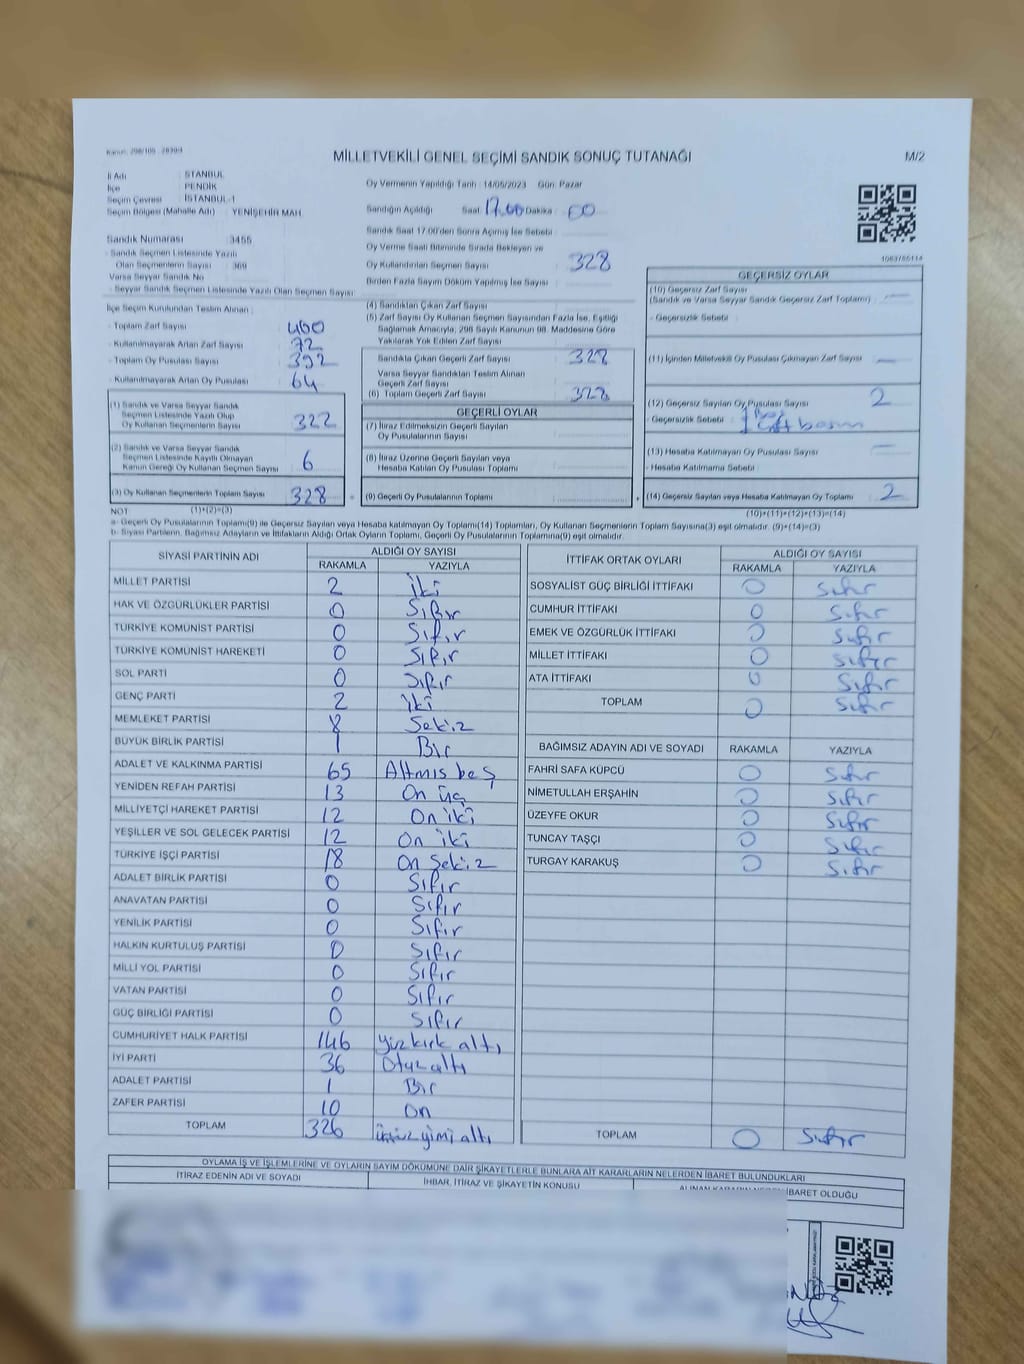 Kanun: 298/105 - 2839/4
MİLLETVEKİLİ GENEL SEÇİMİ SANDIK SONUÇ TUTANAĞI
M/2
İl Adı : İSTANBUL
İlçe : PENDİK
Seçim Çevresi : İSTANBUL-1
Seçim Bölgesi (Mahalle Adı) : YENİŞEHİR MAH.
Sandık Numarası : 3455
- Sandık Seçmen Listesinde Yazılı
Olan Seçmenlerin Sayısı : 369
Varsa Seyyar Sandık No :
- Seyyar Sandık Seçmen Listesinde Yazılı Olan Seçmen Sayısı:
Oy Vermenin Yapıldığı Tarih : 14/05/2023 Gün: Pazar
Sandığın Açıldığı Saat: 17.00 Dakika : 00
Sandık Saat 17.00'den Sonra Açılmış İse Sebebi :
Oy Verme Saati Bitiminde Sırada Bekleyen ve
Oy Kullandırılan Seçmen Sayısı : 328
Birden Fazla Sayım Döküm Yapılmış İse Sayısı :
İlçe Seçim Kurulundan Teslim Alınan :
- Toplam Zarf Sayısı : 400
- Kullanılmayarak Artan Zarf Sayısı : 72
- Toplam Oy Pusulası Sayısı : 392
- Kullanılmayarak Artan Oy Pusulası : 64
(1) Sandık ve Varsa Seyyar Sandık
Seçmen Listesinde Yazılı Olup
Oy Kullanan Seçmenlerin Sayısı : 322
(2) Sandık ve Varsa Seyyar Sandık
Seçmen Listesinde Kayıtlı Olmayan
Kanun Gereği Oy Kullanan Seçmen Sayısı : 6
(3) Oy Kullanan Seçmenlerin Toplam Sayısı : 328
(1)+(2)=(3)
(4) Sandıktan Çıkan Zarf Sayısı :
(5) Zarf Sayısı Oy Kullanan Seçmen Sayısından Fazla İse, Eşitliği
Sağlamak Amacıyla, 298 Sayılı Kanunun 98. Maddesine Göre
Yakılarak Yok Edilen Zarf Sayısı :
Sandıkta Çıkan Geçerli Zarf Sayısı : 328
Varsa Seyyar Sandıktan Teslim Alınan
Geçerli Zarf Sayısı :
(6) Toplam Geçerli Zarf Sayısı : 328
GEÇERLİ OYLAR
(7) İtiraz Edilmeksizin Geçerli Sayılan
Oy Pusulalarının Sayısı :
(8) İtiraz Üzerine Geçerli Sayılan veya
Hesaba Katılan Oy Pusulası Toplamı :
(9) Geçerli Oy Pusulalarının Toplamı :
GEÇERSİZ OYLAR
(10) Geçersiz Zarf Sayısı
(Sandık ve Varsa Seyyar Sandık Geçersiz Zarf Toplamı) :
- Geçersizlik Sebebi :
(11) İçinden Milletvekili Oy Pusulası Çıkmayan Zarf Sayısı :
(12) Geçersiz Sayılan Oy Pusulası Sayısı : 2
- Geçersizlik Sebebi : 1 Boş
1 Çift basım
(13) Hesaba Katılmayan Oy Pusulası Sayısı :
- Hesaba Katılmama Sebebi :
(14) Geçersiz Sayılan veya Hesaba Katılmayan Oy Toplamı : 2
(10)+(11)+(12)+(13)=(14)
NOT :
a- Geçerli Oy Pusulalarının Toplamı(9) ile Geçersiz Sayılan veya Hesaba katılmayan Oy Toplamı(14) Toplamları, Oy Kullanan Seçmenlerin Toplam Sayısına(3) eşit olmalıdır. (9)+(14)=(3)
b- Siyasi Partilerin, Bağımsız Adayların ve İttifakların Aldığı Ortak Oyların Toplamı, Geçerli Oy Pusulalarının Toplamına(9) eşit olmalıdır.
SİYASİ PARTİNİN ADI ALDIĞI OY SAYISI
RAKAMLA YAZIYLA
MİLLET PARTİSİ 2 iki
HAK VE ÖZGÜRLÜKLER PARTİSİ 0 Sıfır
TÜRKİYE KOMÜNİST PARTİSİ 0 Sıfır
TÜRKİYE KOMÜNİST HAREKETİ 0 Sıfır
SOL PARTİ 0 Sıfır
GENÇ PARTİ 2 iki
MEMLEKET PARTİSİ 8 Sekiz
BÜYÜK BİRLİK PARTİSİ 1 Bir
ADALET VE KALKINMA PARTİSİ 65 Altmış beş
YENİDEN REFAH PARTİSİ 13 On üç
MİLLİYETÇİ HAREKET PARTİSİ 12 On iki
YEŞİLLER VE SOL GELECEK PARTİSİ 12 On iki
TÜRKİYE İŞÇİ PARTİSİ 18 On Sekiz
ADALET BİRLİK PARTİSİ 0 Sıfır
ANAVATAN PARTİSİ 0 Sıfır
YENİLİK PARTİSİ 0 Sıfır
HALKIN KURTULUŞ PARTİSİ 0 Sıfır
MİLLİ YOL PARTİSİ 0 Sıfır
VATAN PARTİSİ 0 Sıfır
GÜÇ BİRLİĞİ PARTİSİ 0 Sıfır
CUMHURİYET HALK PARTİSİ 146 yüz kırk altı
İYİ PARTİ 36 Otuz altı
ADALET PARTİSİ 1 Bir
ZAFER PARTİSİ 10 On
TOPLAM 326 üçyüz yimi altı
İTTİFAK ORTAK OYLARI ALDIĞI OY SAYISI
RAKAMLA YAZIYLA
SOSYALİST GÜÇ BİRLİĞİ İTTİFAKI 0 Sıfır
CUMHUR İTTİFAKI 0 Sıfır
EMEK VE ÖZGÜRLÜK İTTİFAKI 0 Sıfır
MİLLET İTTİFAKI 0 Sıfır
ATA İTTİFAKI 0 Sıfır
TOPLAM 0 Sıfır
BAĞIMSIZ ADAYIN ADI VE SOYADI RAKAMLA YAZIYLA
FAHRİ SAFA KÜPCÜ 0 Sıfır
NİMETULLAH ERŞAHİN 0 Sıfır
ÜZEYFE OKUR 0 Sıfır
TUNCAY TAŞÇI 0 Sıfır
TURGAY KARAKUŞ 0 Sıfır
TOPLAM 0 Sıfır
OYLAMA İŞ VE İŞLEMLERİNE VE OYLARIN SAYIM DÖKÜMÜNE DAİR ŞİKAYETLERLE BUNLARA AİT KARARLARIN NELERDEN İBARET BULUNDUKLARI
İTİRAZ EDENİN ADI VE SOYADI İHBAR, İTİRAZ VE ŞİKAYETİN KONUSU İBARET OLDUĞU